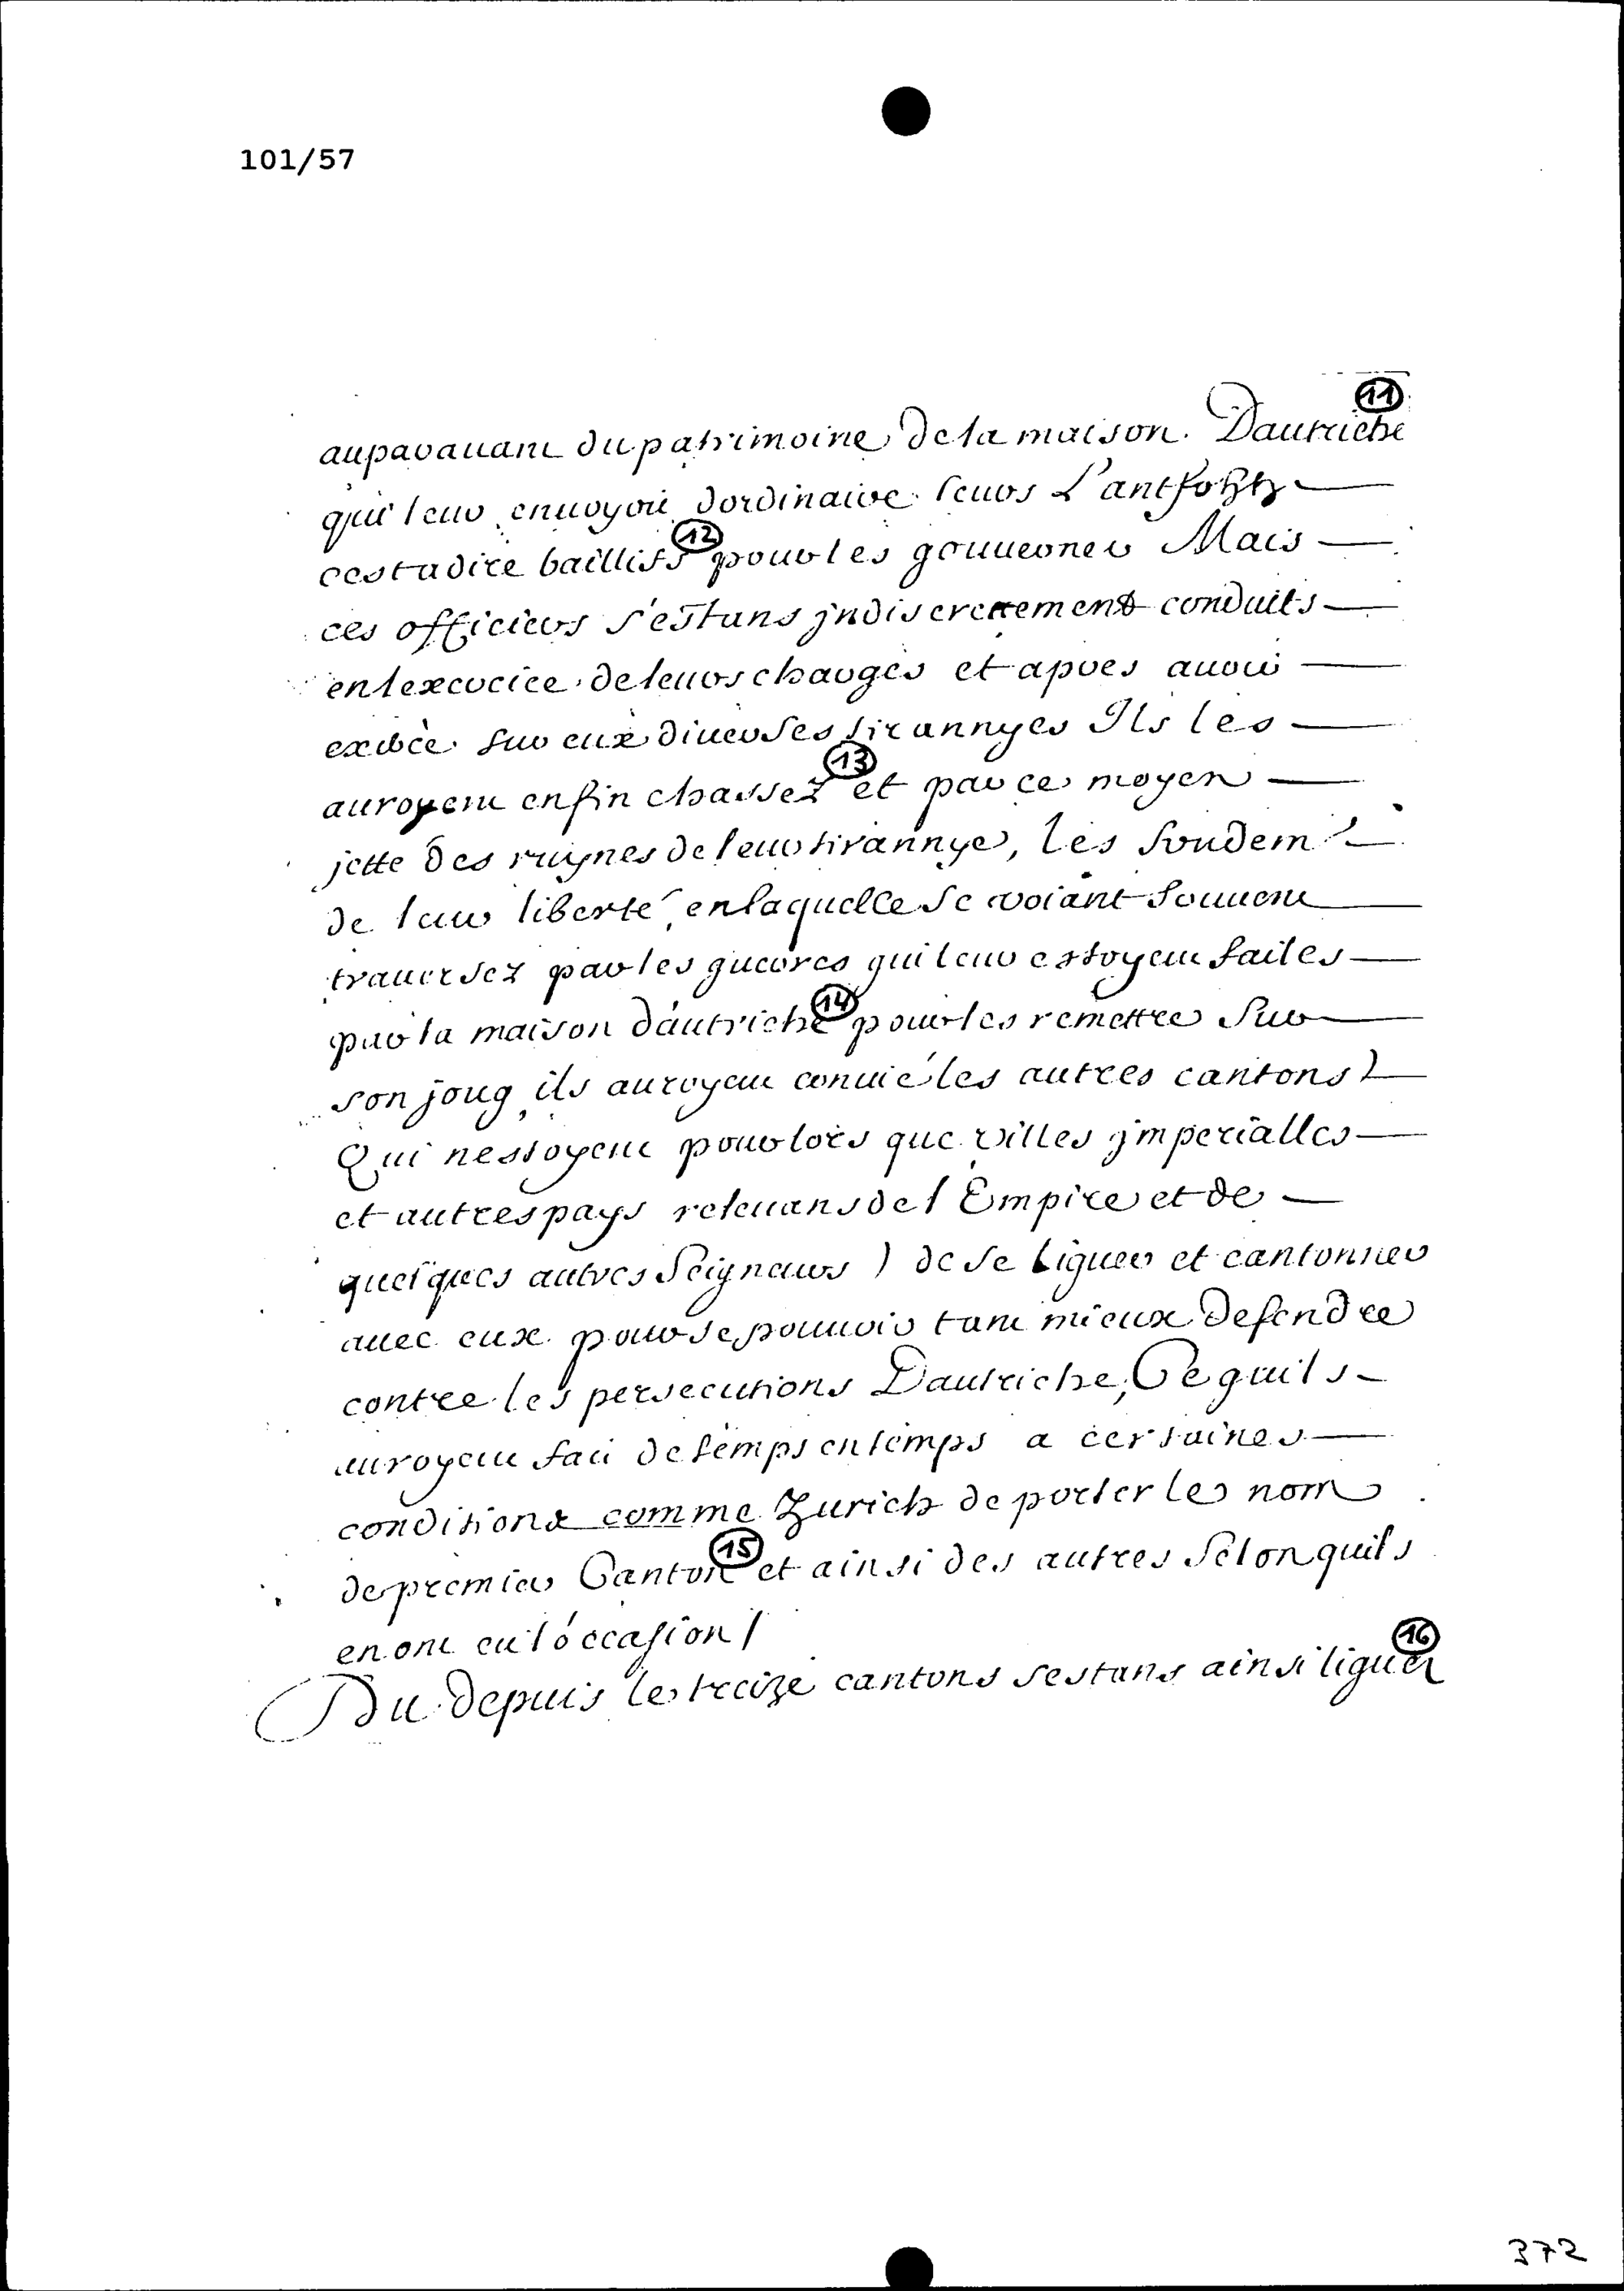 101/57
11
auparauant du patrimoine de la maison. Dautriche
qui leur enuoyoit dordinaire leurs Lantfogtz
cest a dire baillifs 12 pour les gouuerner Mais
ces officiers s'estans jndiscrettement conduits
en lexercice de leurs charges et apres auoir
exercé sur eux diuerses tirannyes Ils les
auroyent enfin chassez 13 et par ce moyen
jette des ruynes de leur tirannye, les fondemts
de leur liberté, en laquelle se voiant souuent
trauersez par les guerres qui leur estoyent faites
par la maison dautriche 14 pour les remettre sur
son joug ils auroyent conuié les autres cantons (
Qui nestoyent pour lors que villes jmperialles
et autres pays releuans de l Empire et de
quelques autres Seigneurs ) de se liguer et cantonner
auec eux pour se pouuoir tant mieux defendre
contre les persecutions Dautriche, Ce quils
auroyent fait de temps en temps a certaines
conditions comme Zurich de porter le nom
de premier Canton 15 et ainsi des autres Selon quils
en ont eu l'occasion /
Du depuis les treize cantons sestans ainsi liguez 16
372